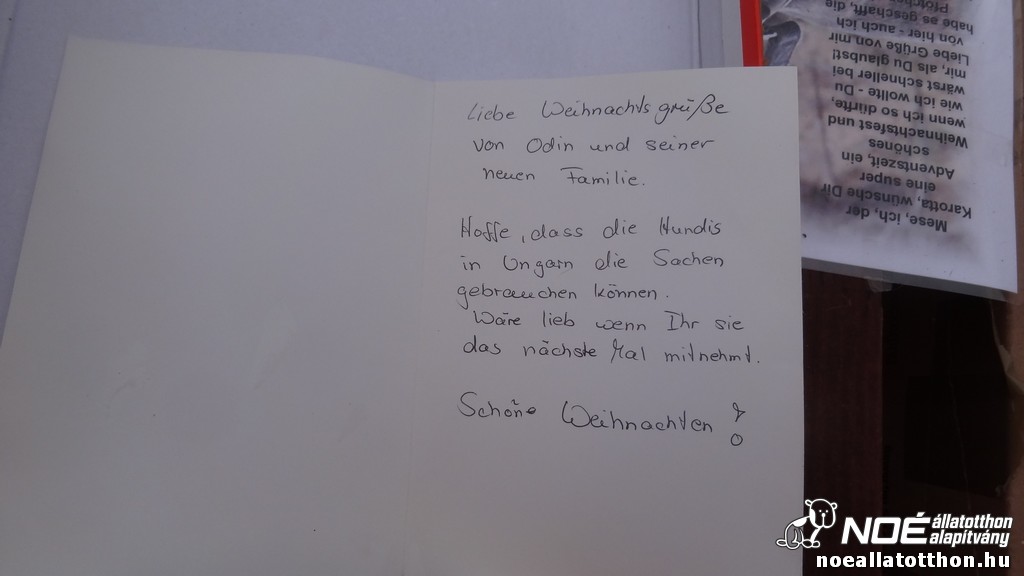 Liebe Weihnachtsgrüße
von Odin und seiner
neuen Familie.
Hoffe, dass die Hundis
in Ungarn die Sachen
gebrauchen können.
Wäre lieb wenn Ihr sie
das nächste Mal mitnehmt.
Schöne Weihnachten !
Mese, ich, der
Karotta, wünsche Dir
eine super
Adventszeit, ein
schönes
Weihnachtsfest und
wenn ich so dürfte,
wie ich wollte - Du
wärst schneller bei
mir, als Du glaubst!
Liebe Grüße von mir
von hier - auch ich
habe es geschafft, die
NOÉ állatotthon
alapítvány
noeallatotthon.hu